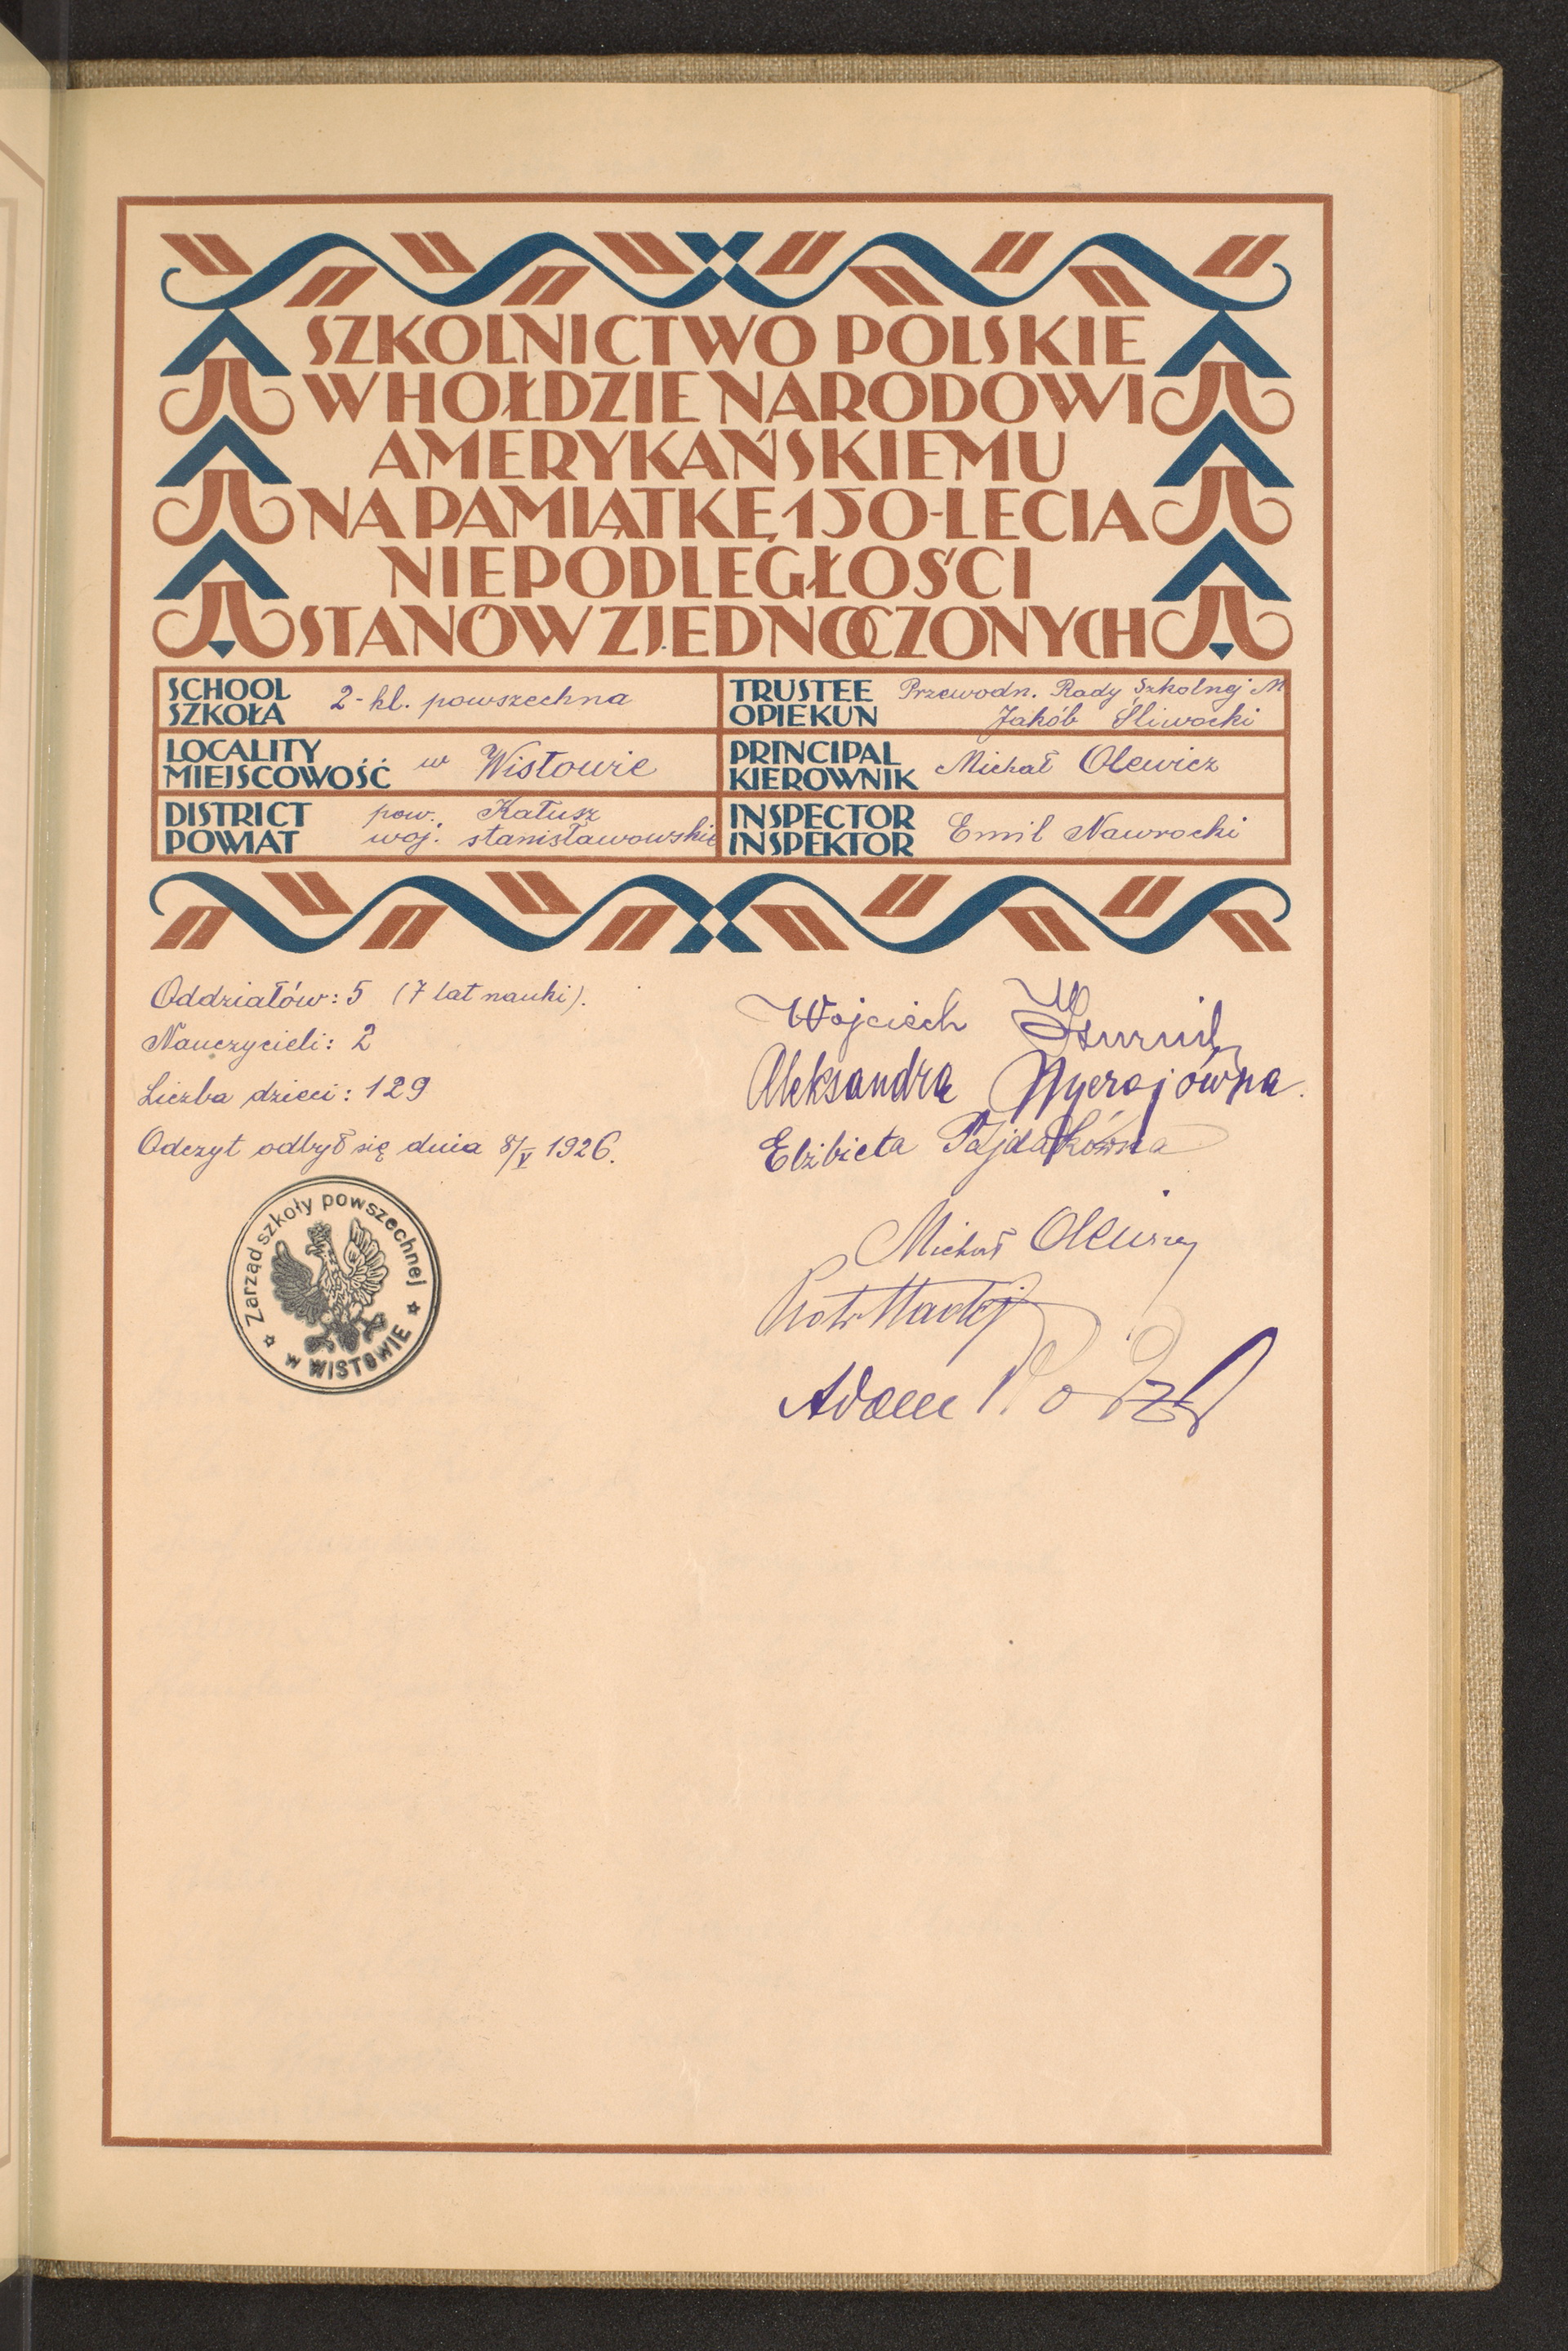 SZKOLNICTWO POLSKIE
W HOŁDZIE NARODOWI
AMERYKAŃSKIEMU
NA PAMIĄTKĘ 150-LECIA
NIEPODLEGŁOŚCI
STANÓW ZJEDNOCZONYCH
SCHOOL
SZKOŁA
2-kl. powszechna
TRUSTEE
OPIEKUN
Przewodn. Rady Szkolnej M
Jakób Śliwocki
LOCALITY
MIEJSCOWOŚĆ
w Wistowie
PRINCIPAL
KIEROWNIK
Michał Olewicz
DISTRICT
POWIAT
pow. Kałusz
woj. stanisławowskie
INSPECTOR
INSPEKTOR
Emil Nawrocki
Oddziałów: 5 (7 lat nauki).
Nauczycieli: 2
Liczba dzieci: 129
Odczyt odbył się dnia 8/V 1926.
Zarząd szkoły powszechnej
w WISTOWIE
Wojciech
Aleksandra
Elżbieta
Michał Olewicz
Piotr
Adam